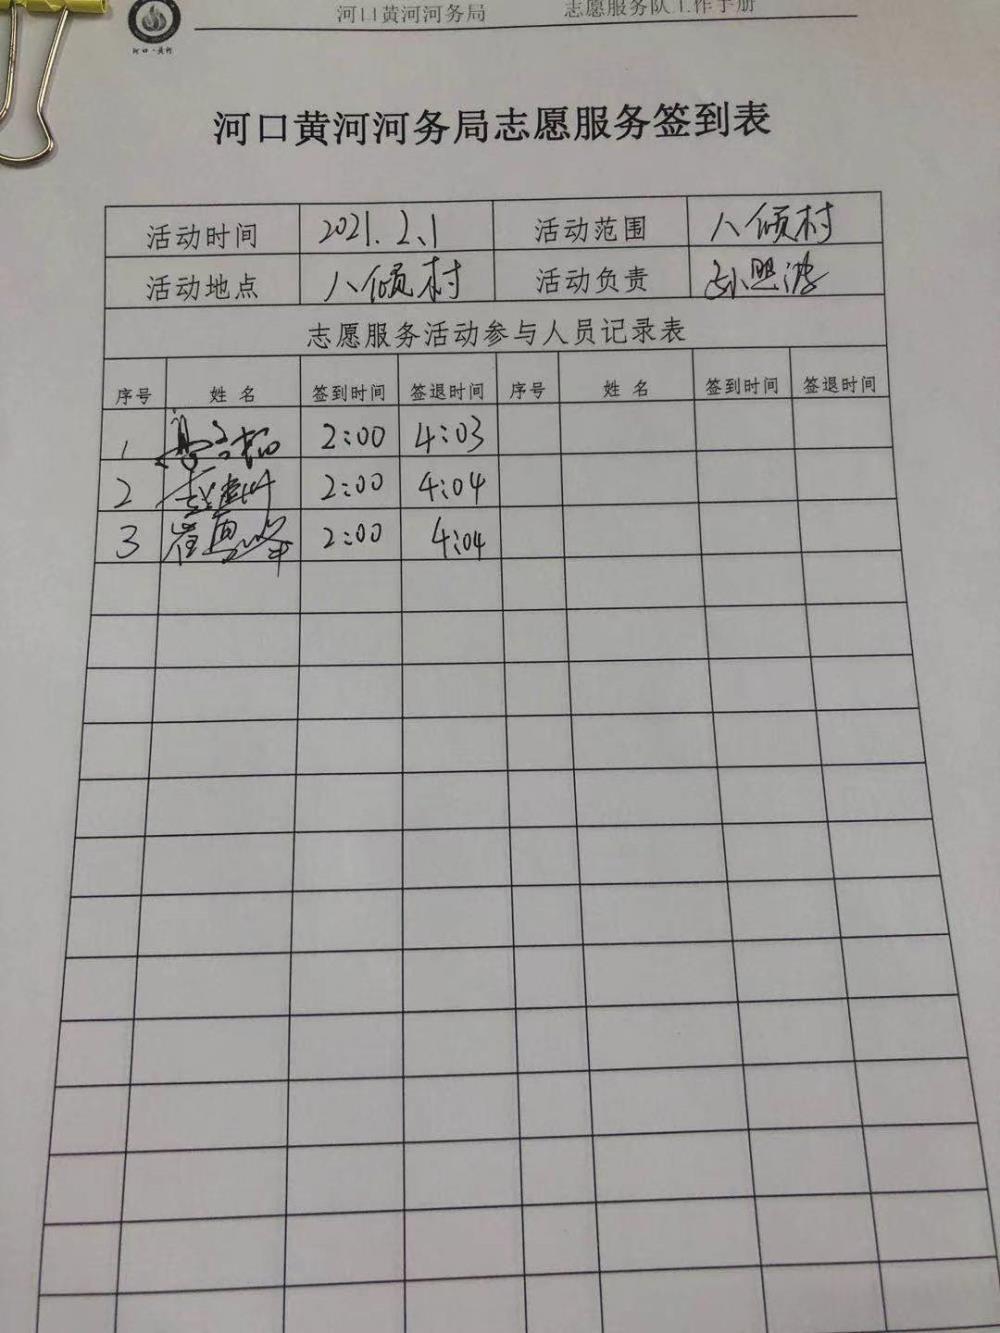 河口·黄河
河口黄河河务局 志愿服务队工作手册
河口黄河河务局志愿服务签到表
活动时间 2021.2.1 活动范围 八倾村
活动地点 八倾村 活动负责 孙照波
志愿服务活动参与人员记录表
序号 姓名 签到时间 签退时间 序号 姓名 签到时间 签退时间
1 2:00 4:03
2 2:00 4:04
3 2:00 4:04